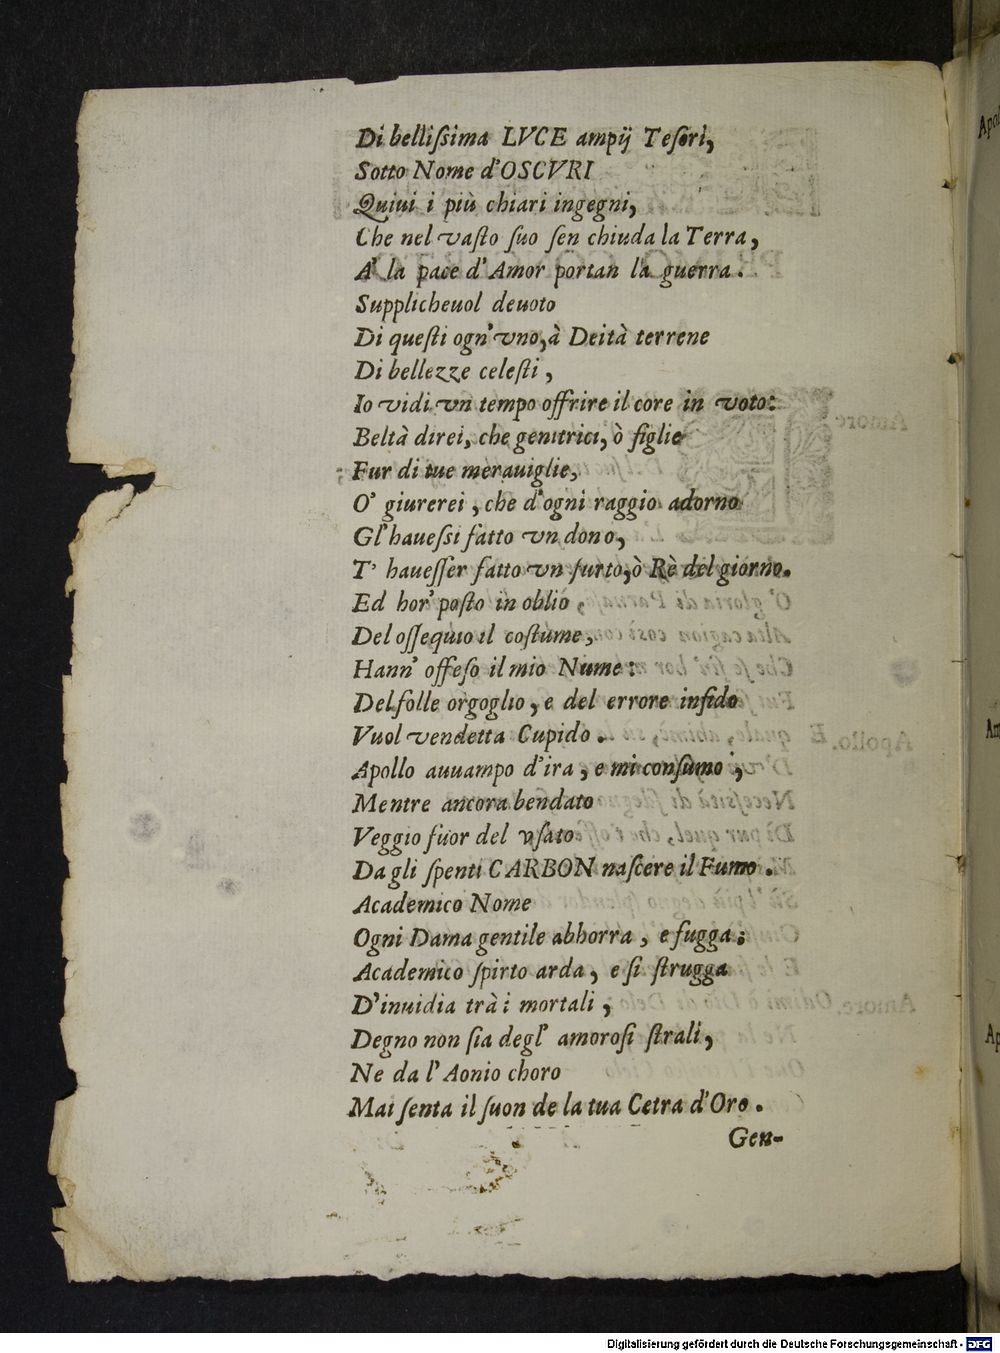 Di belliſsima LVCE ampij Teſori,
Sotto Nome d'OSCVRI
Quiui i più chiari ingegni,
Che nel vaſto ſuo ſen chiuda la Terra,
A' la pace d'Amor portan la guerra.
Supplicheuol deuoto
Di queſti ogn'vno, à Deità terrene
Di bellezze celeſti,
Io vidi vn tempo offrire il core in voto:
Beltà direi, che genitrici, ò figlie
Fur di tue merauiglie,
O' giurerei, che d'ogni raggio adorno
Gl'haueſsi fatto vn dono,
T' haueſſer fatto vn furto, ò Rè del giorno.
Ed hor' poſto in oblio,
Del oſſequio il coſtume,
Hann' offeſo il mio Nume:
Del folle orgoglio, e del errore infido
Vuol vendetta Cupido.
Apollo auuampo d'ira, e mi conſumo,
Mentre ancora bendato
Veggio fuor del vſato
Da gli ſpenti CARBON naſcere il Fumo.
Academico Nome
Ogni Dama gentile abhorra, e fugga;
Academico ſpirto arda, e ſi ſtrugga
D'inuidia trà i mortali,
Degno non ſia degl' amoroſi ſtrali,
Ne da l'Aonio choro
Mai ſenta il ſuon de la tua Cetra d'Oro.
Gen-
Digitalisierung gefördert durch die Deutsche Forschungsgemeinschaft - DFG